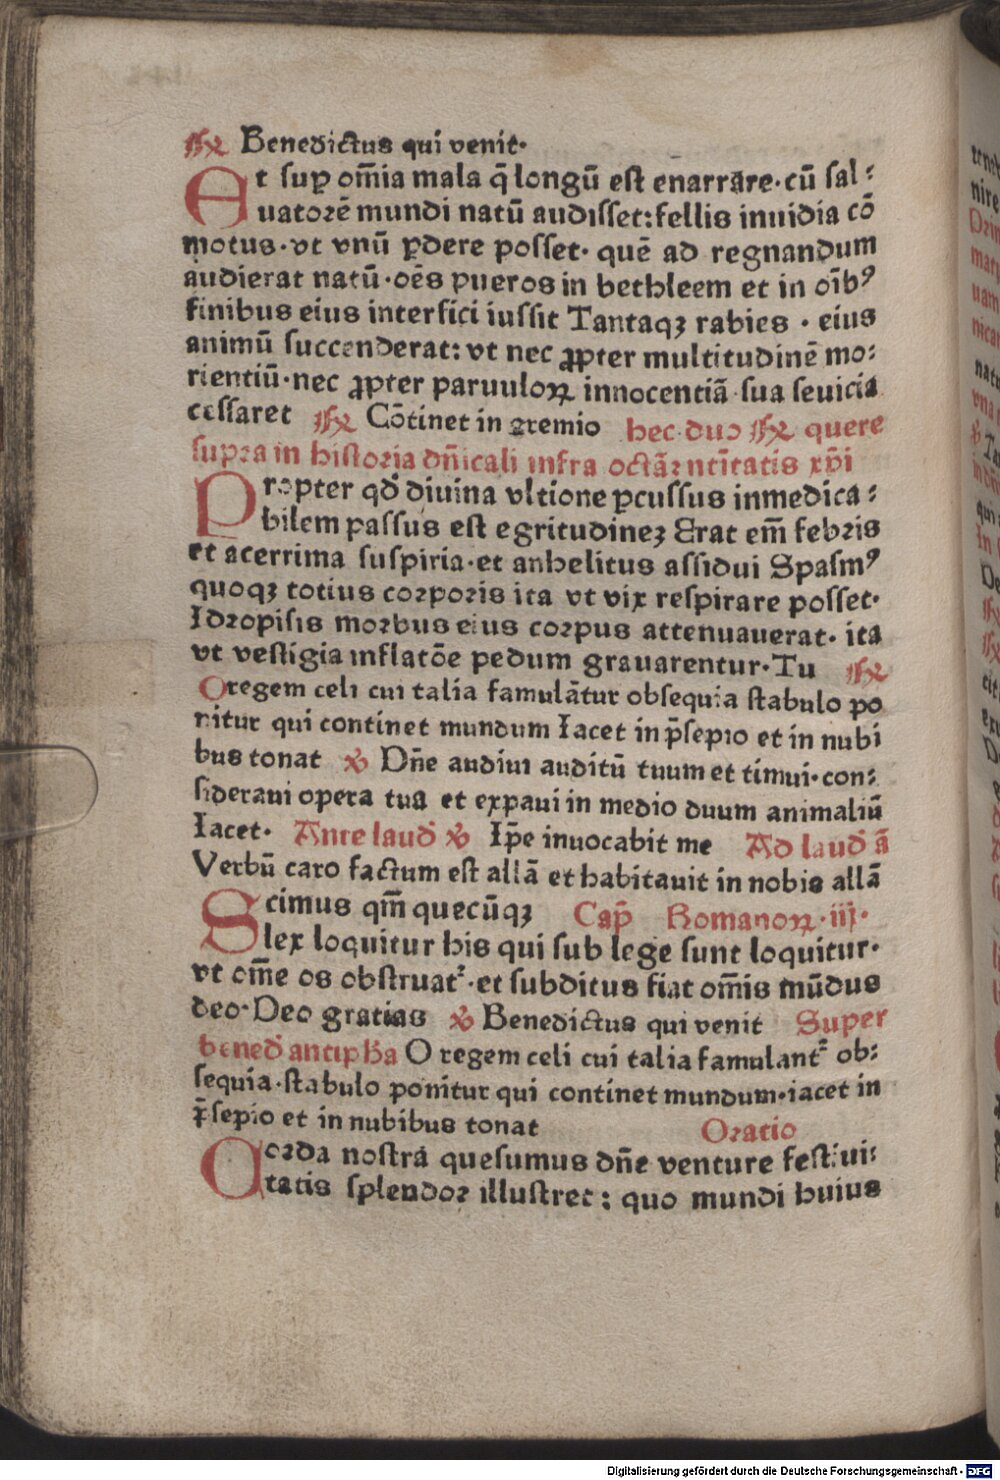 ℟ Benedictus qui venit·
Et sup om̄ia mala q̄ longū est enarrare·cū sal⸗
uatorē mundi natū audisset:fellis inuidia cō
motus·vt vnū ꝑdere posset· quē ad regnandum
audierat natū·oēs pueros in bethleem et in oīb⁹
finibus eius interfici iussit Tantaqꝫ rabies · eius
animū succenderat: vt nec ꝓpter multitudinē mo⸗
rientiū·nec ꝓpter paruuloꝝ innocentiā sua seuicia
cessaret ℟ Cōtinet in gremio hec duo ℟ quere
supra in historia dn̄icali infra octāꝛ ntītatis xp̄i
Propter qd̄ diuina vltione ꝑcussus inmedica⸗
bilem passus est egritudineꝫ Erat em̄ febꝛis
et acerrima suspiria·et anhelitus assidui Spasm⁹
quoqꝫ totius coꝛpoꝛis ita vt vix respirare posset·
Idꝛopisis moꝛbus eius coꝛpus attenuauerat· ita
vt vestigia inflatōe pedum grauarentur·Tu ℟
Oregem celi cui talia famulātur obsequia stabulo po
nitur qui continet mundum Iacet in p̄sepio et in nubi
bus tonat ℣ Dn̄e audiui auditū tuum et timui·con⸗
sideraui opera tua et expaui in medio duum animaliū
Iacet· Ante laud̄ ℣ Ip̄e inuocabit me Ad laud̄ ā
Verbū caro factum est allā et habitauit in nobis allā
Scimus qm̄ quecūqꝫ Cap̄ Romanoꝝ·iij·
lex loquitur his qui sub lege sunt loquitur·
vt om̄e os obstruatᷣ·et subditus fiat om̄is mūdus
deo·Deo gratias ℣ Benedictus qui venit Super
bened̄ antipħa O regem celi cui talia famulantᷣ ob⸗
sequia·stabulo ponitur qui continet mundum·iacet in
p̄sepio et in nubibus tonat Oꝛatio
Coꝛda nostra quesumus dn̄e venture festiui⸗
tatis splendoꝛ illustret: quo mundi huius
Digitalisierung gefördert durch die Deutsche Forschungsgemeinschaft - DFG